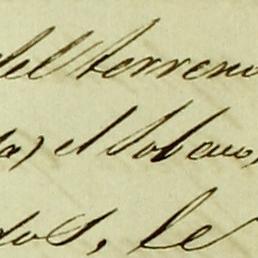 del terreno
a) el Soberano
dos, le